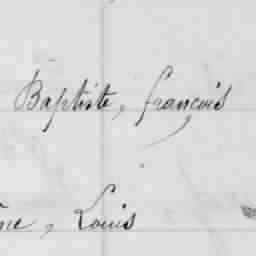 Baptiste, françois
ne, Louis